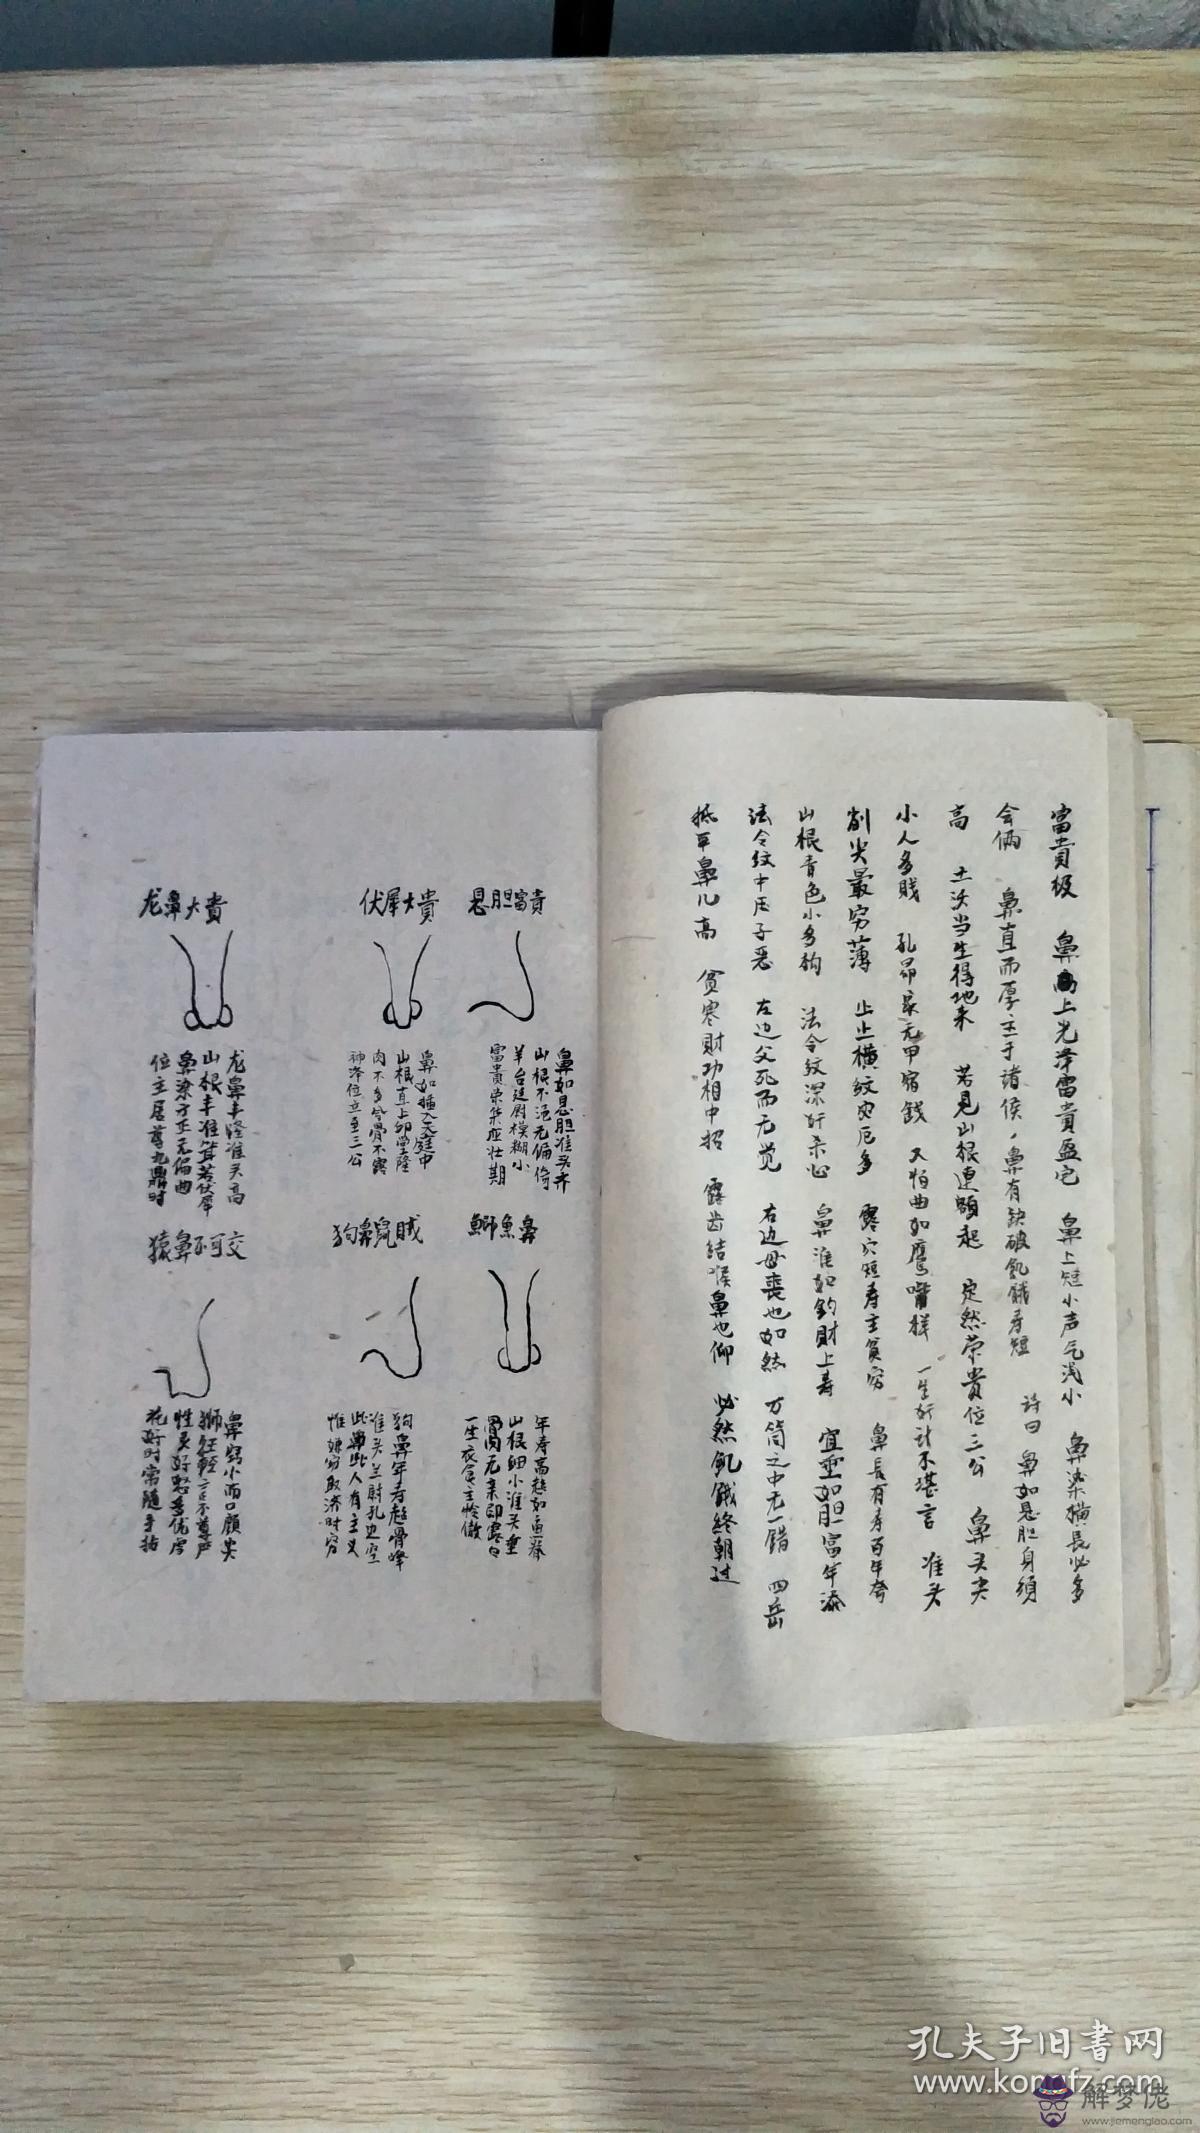 富貴极 鼻上光泽富貴盈宅 鼻上短小声气浅小 鼻梁横長必多
会俩 鼻直而厚主于诸侯，鼻有缺破飢餓寿短 诗曰 鼻如悬胆身须
高 土沃当生得地来 若見山根連額起 定然荣貴位三公 鼻头尖
小人多賎 孔昂家无甲宿錢 又怕曲如鹰嘴样 一生奸计不堪言 准头
削尖最穷薄 止止横紋灾厄多 露穴短寿主貧穷 鼻長有寿百年夸
山根青色小多拘 法令纹深奸杀心 鼻準如鈎財上寿 宜垂如胆富年添
法令纹中压子恶 左边父死而无觉 右边母喪也如然 万筒之中无一错 四岳
抵平鼻儿高 貧寒財功相中招 露齿結喉鼻也仰 必然飢餓終朝过
悬胆富貴
鼻如悬胆准头齐
山根不浥无偏倚
羊台廷尉模糊小
富貴荣华应壮期
伏犀大貴
鼻如插入天庭中
山根直上印堂隆
肉不多兮骨不露
神泽位立至三公
龙鼻大貴
龙鼻丰隆准头高
山根丰准耸若伏犀
鼻梁方正无偏曲
位主居尊九鼎时
鰤魚鼻
年寿高起如魚脊
山根细小准头垂
骨肉无亲印露白
一生衣食主怜傲
狗鼻鼠賊
狗鼻年寿起骨峰
准头兰尉孔边空
此鼻此人有主义
惟嫌穷取济时穷
猿鼻不可交
鼻窍小而口顾尖
狮狂輕言不尊严
性灵好怒多优虑
花好时常随手拈
孔夫子旧書网
www.kongfz.com
解梦佬
www.jiemenglao.com